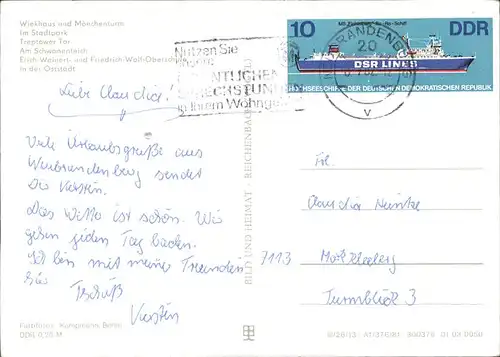 Wiekhaus und Mönchenturm
Im Stadtpark
Treptower Tor
Am Schwanenteich
Erich-Weinert- und Friedrich-Wolf-Oberschule
in der Oststadt
Nutzen Sie
ÖFFENTLICHEN
SPRECHSTUNDEN
in Ihrem Wohngebiet
BRANDENBURG
20
v
10
DDR
DSR LINES
HOCHSEESCHIFFE DER DEUTSCHEN DEMOKRATISCHEN REPUBLIK
Liebe Claudia!
Viele Urlaubsgrüße aus
Neubrandenburg sendet
Dir Kerstin.
Das Wetter ist schön. Wir
gehen jeden Tag baden.
Ich bin mit meine Freundin
hier
Tschüß
Kerstin
BILD UND HEIMAT · REICHENBACH
Frl.
Claudia
7113 Markkleeberg
Turmblick 3
DDR 0,20 M